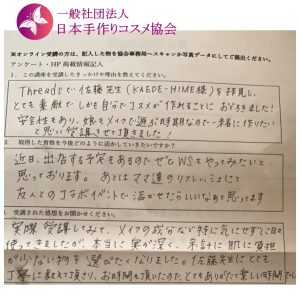 一般社団法人
日本手作りコスメ協会
※オンライン受講の方は、記入した物を協会事務局へスキャンか写真データにしてご提出ください。
アンケート・HP 掲載情報記入
1. この講座を受講したきっかけや理由を教えてください。
Threadsで佐藤先生(KAEDE-HIME様)を拝見し、
とても素敵でしかも自分でコスメが作れることにおどろきました!
安全性もあり、娘もメイクで遊ぶ時期なので一緒に作りたい
と思い受講させて頂きました!
2. 取得した資格を今後どのように活かしていきたいですか?
近日、出店する予定もあるのでぜひWSもやってみたいと
思っております。あとはママ達のリフレッシュにと
友人とのコラボイベントで活かせたらいいなぁと思ってます
3. 受講された感想をお聞かせください。
実際受講してみて、メイクの成分など特に気にせずに
使ってきましたが、本当に奥が深く、余計に肌に負担
が少ない物を選びたくなりました。佐藤先生にとても
丁寧に教えて頂き、お時間も頂いたので、とてもありがたく楽しい時間でした